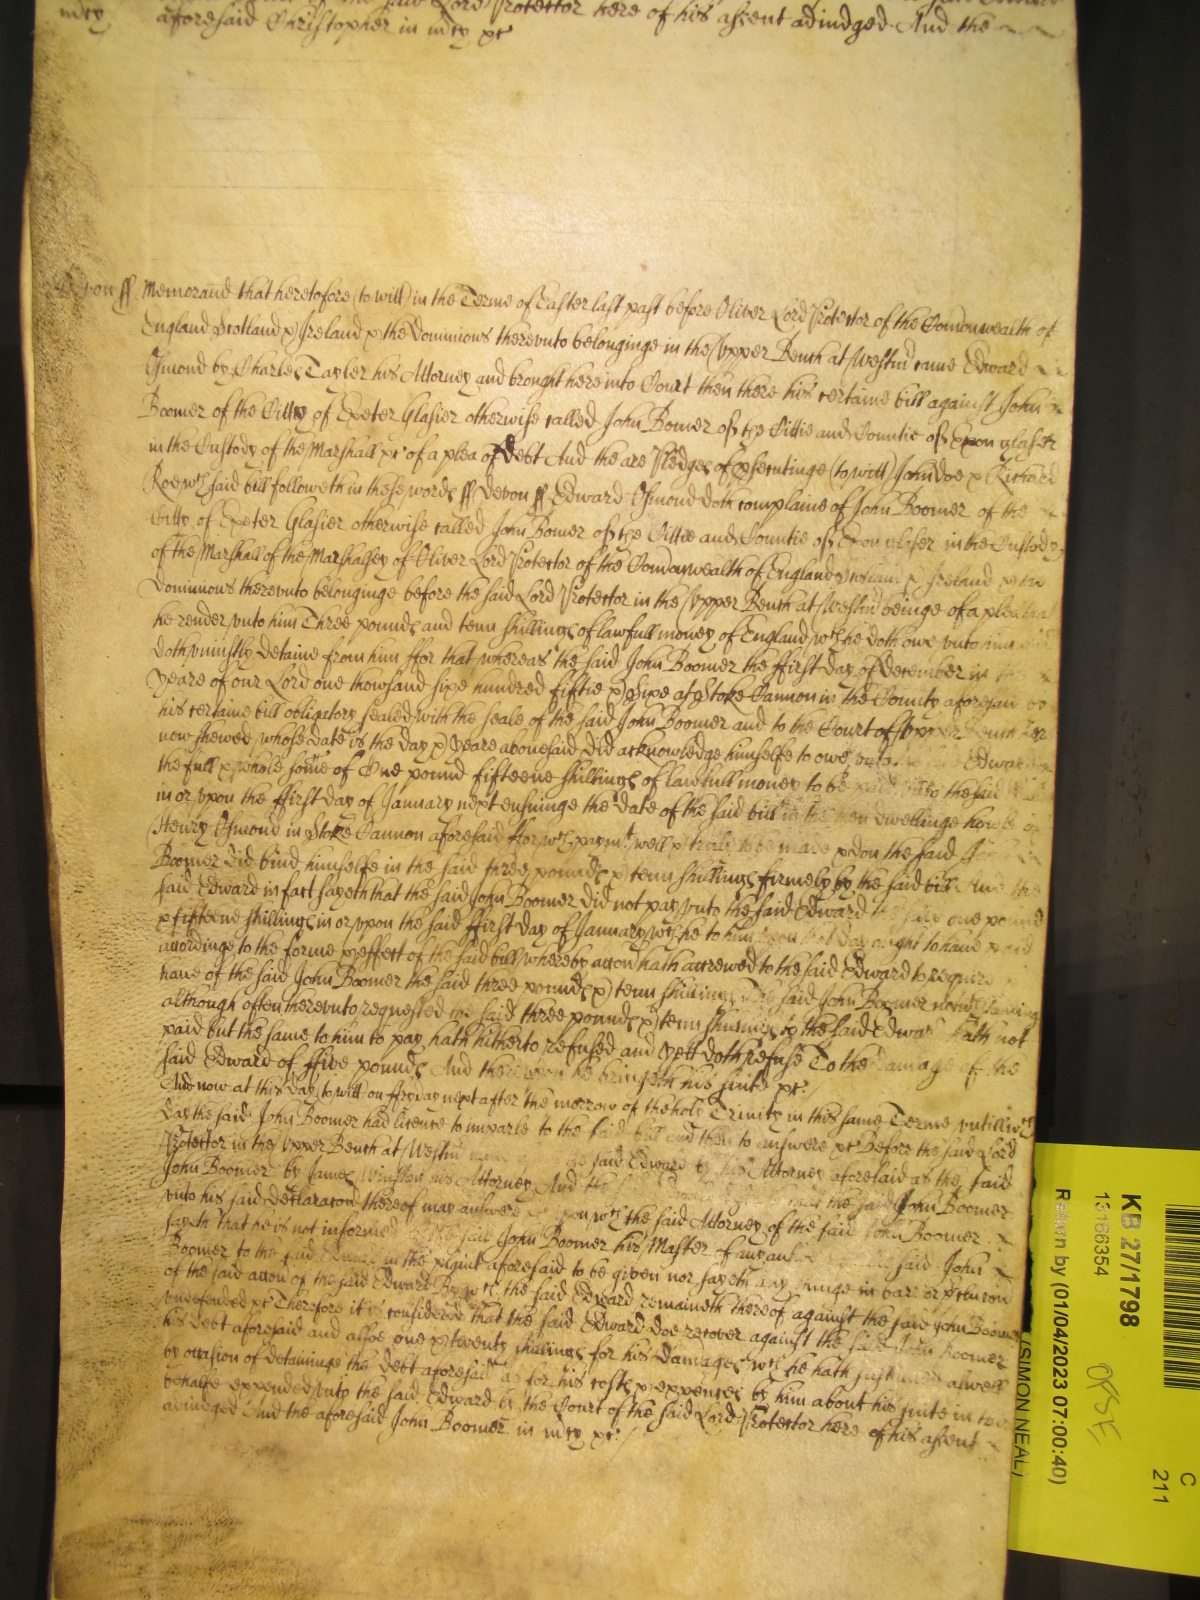 the said Lord Protector here of his assent adiudged And the
mcy aforesaid Christopher in mcy &c
Devon ss Memorand that heretofore (to witt) in the Terme of Easter last past before Oliver Lord Protector of the Comonwealth of
England Scotland & Ireland & the Dominions therevnto belonginge in the Vpper Bench at Westm came Edward
Osmond by Charles Tayler his Attorney and brought here into Court then there his certaine bill against John
Boomer of the Citty of Exeter Glasier otherwise called John Bomer of the Cittie and Countie of Exon glaser
in the Custody of the Marshall &c of a plea of Debt And the are Pledges of psecutinge (to witt) John doe & Richard
Roe wch said bill followeth in these words ss Devon ss Edward Osmond doth complaine of John Boomer of the
Citty of Exeter Glasier otherwise called John Bomer of the Cittie and Countie of Exon glaser in the Custody
of the Marshall of the Marshalsey of Oliver Lord Protector of the Comonwealth of England Scotland & Ireland & the
Dominions therevnto belonginge before the said Lord Protector in the Vpper Bench at Westm beinge of a plea that
he render vnto him Three pounds and tenn shillings of lawfull money of England wch he doth owe vnto him
doth vniustly detaine from him ffor that whereas the said John Boomer the ffirst day of december in
yeare of our Lord one thowsand sixe hundred fiftie & sixe at Stoke Cannon in the County aforesaid
his certaine bill obligatory sealed with the seale of the said John Boomer and to the Court of Vpper Bench
now shewed whose date is the day & yeare abouesaid did acknowledge himselfe to owe vnto Edward
the full & whole some of One pound fifteene shillings of lawfull money to be paid vnto the said
in or vpon the ffirst day of January next ensuinge the date of the said bill in the dwellinge house of
Henry Osmond in Stoke Cannon aforesaid ffor wch paymt well & truly to be made & don the said
Boomer did bind himselfe in the said three pounds & tenn shillings firmely by the said bill And the
said Edward in fact sayeth that the said John Boomer did not pay vnto the said Edward the said one pound
& fifteene shillings in or vpon the said ffirst day of January wch he to him vpon that day ought to haue paid
accordinge to the forme & effect of the said bill whereby accon hath accrewed to the said Edward to require
haue of the said John Boomer the said three pounds & tenn shillings the said John Boomer
although often therevnto requested the said three pounds & tenn shillings to the said Edward hath not
paid but the same to him to pay hath hitherto refused and yett doth refuse To the damage of the
said Edward of ffive pounds And therevpon he bringeth his suite &c
And now at this day (to witt) on ffryday next after the morrow of the holy Trinity in this same Terme vntill wch
day the said John Boomer had licence to imparle to the said bill and then to answere &c before the said Lord
Protector in the Vpper Bench at Westm came the said Edward by his Attorney aforesaid as the said
John Boomer by James his Attorney And the said the said John Boomer
vnto his said declaracon thereof may answere vpon wch the said Attorney of the said John Boomer
sayeth that he is not informed the said John Boomer his Master of any said John
Boomer to the said in the plaint aforesaid to be given nor sayeth any thinge in barr or
of the said accon of the said Edward By wch the said Edward remaineth thereof against the said John Boomer
vndefended &c Therefore it is considered that the said Edward doe recover against the said John Boomer
his debt aforesaid and alsoe one & twenty shillings for his damages wch he hath aswell
by occasion of detaininge the debt aforesaid as for his costs & expences by him about his suite in this
behalfe expended vnto the said Edward by the Court of the said Lord Protector here of his assent
adiudged And the aforesaid John Boomer in mcy &c
C
211
KB 27/1798
13166354
Return by (01/04/2023 07:00:40)
(SIMON NEAL)